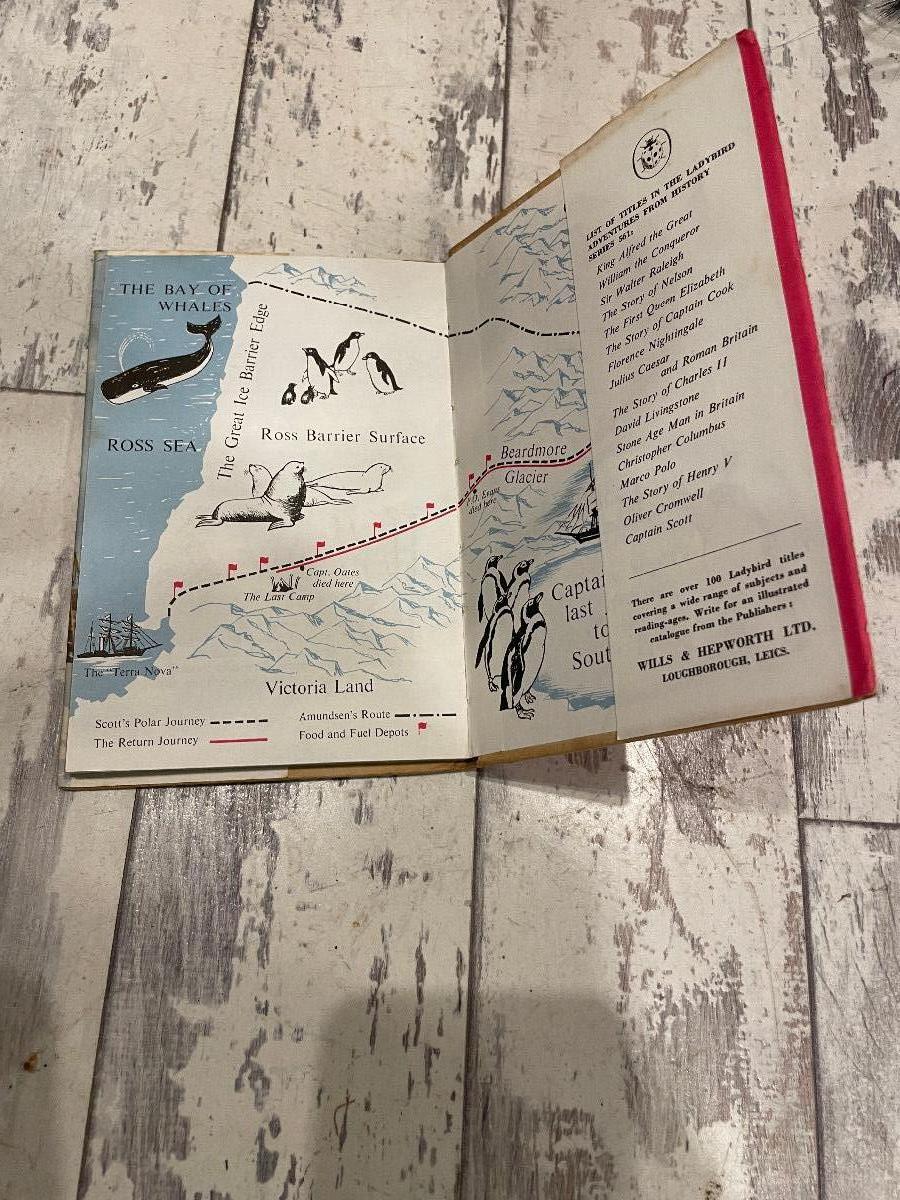 THE BAY OF
WHALES
The Great Ice Barrier Edge
ROSS SEA
Ross Barrier Surface
Capt. Oates
died here
The Last Camp
The "Terra Nova"
Victoria Land
Scott's Polar Journey
The Return Journey
Amundsen's Route
Food and Fuel Depots
Beardmore
Glacier
died here
Captai
last
to
Sout
LIST OF TITLES IN THE LADYBIRD
ADVENTURES FROM HISTORY
SERIES 561:
King Alfred the Great
William the Conqueror
Sir Walter Raleigh
The Story of Nelson
The First Queen Elizabeth
The Story of Captain Cook
Florence Nightingale
Julius Caesar
and Roman Britain
The Story of Charles II
David Livingstone
Stone Age Man in Britain
Christopher Columbus
Marco Polo
The Story of Henry V
Oliver Cromwell
Captain Scott
There are over 100 Ladybird titles
covering a wide range of subjects and
reading-ages. Write for an illustrated
catalogue from the Publishers:
WILLS & HEPWORTH LTD.
LOUGHBOROUGH, LEICS.